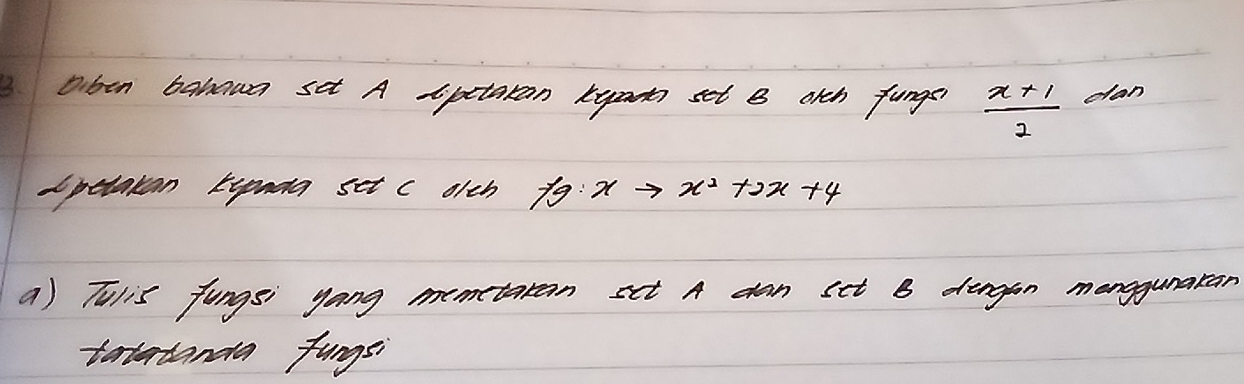 3. Diberi bahawa set A dipetakan kepada set B oleh fungsi x + 1 / 2 dan
dipetakan kepada set C oleh fg : x → x² + 2x + 4
a) Tulis fungsi yang memetakan set A dan set B dengan menggunakan
tatatanda fungsi